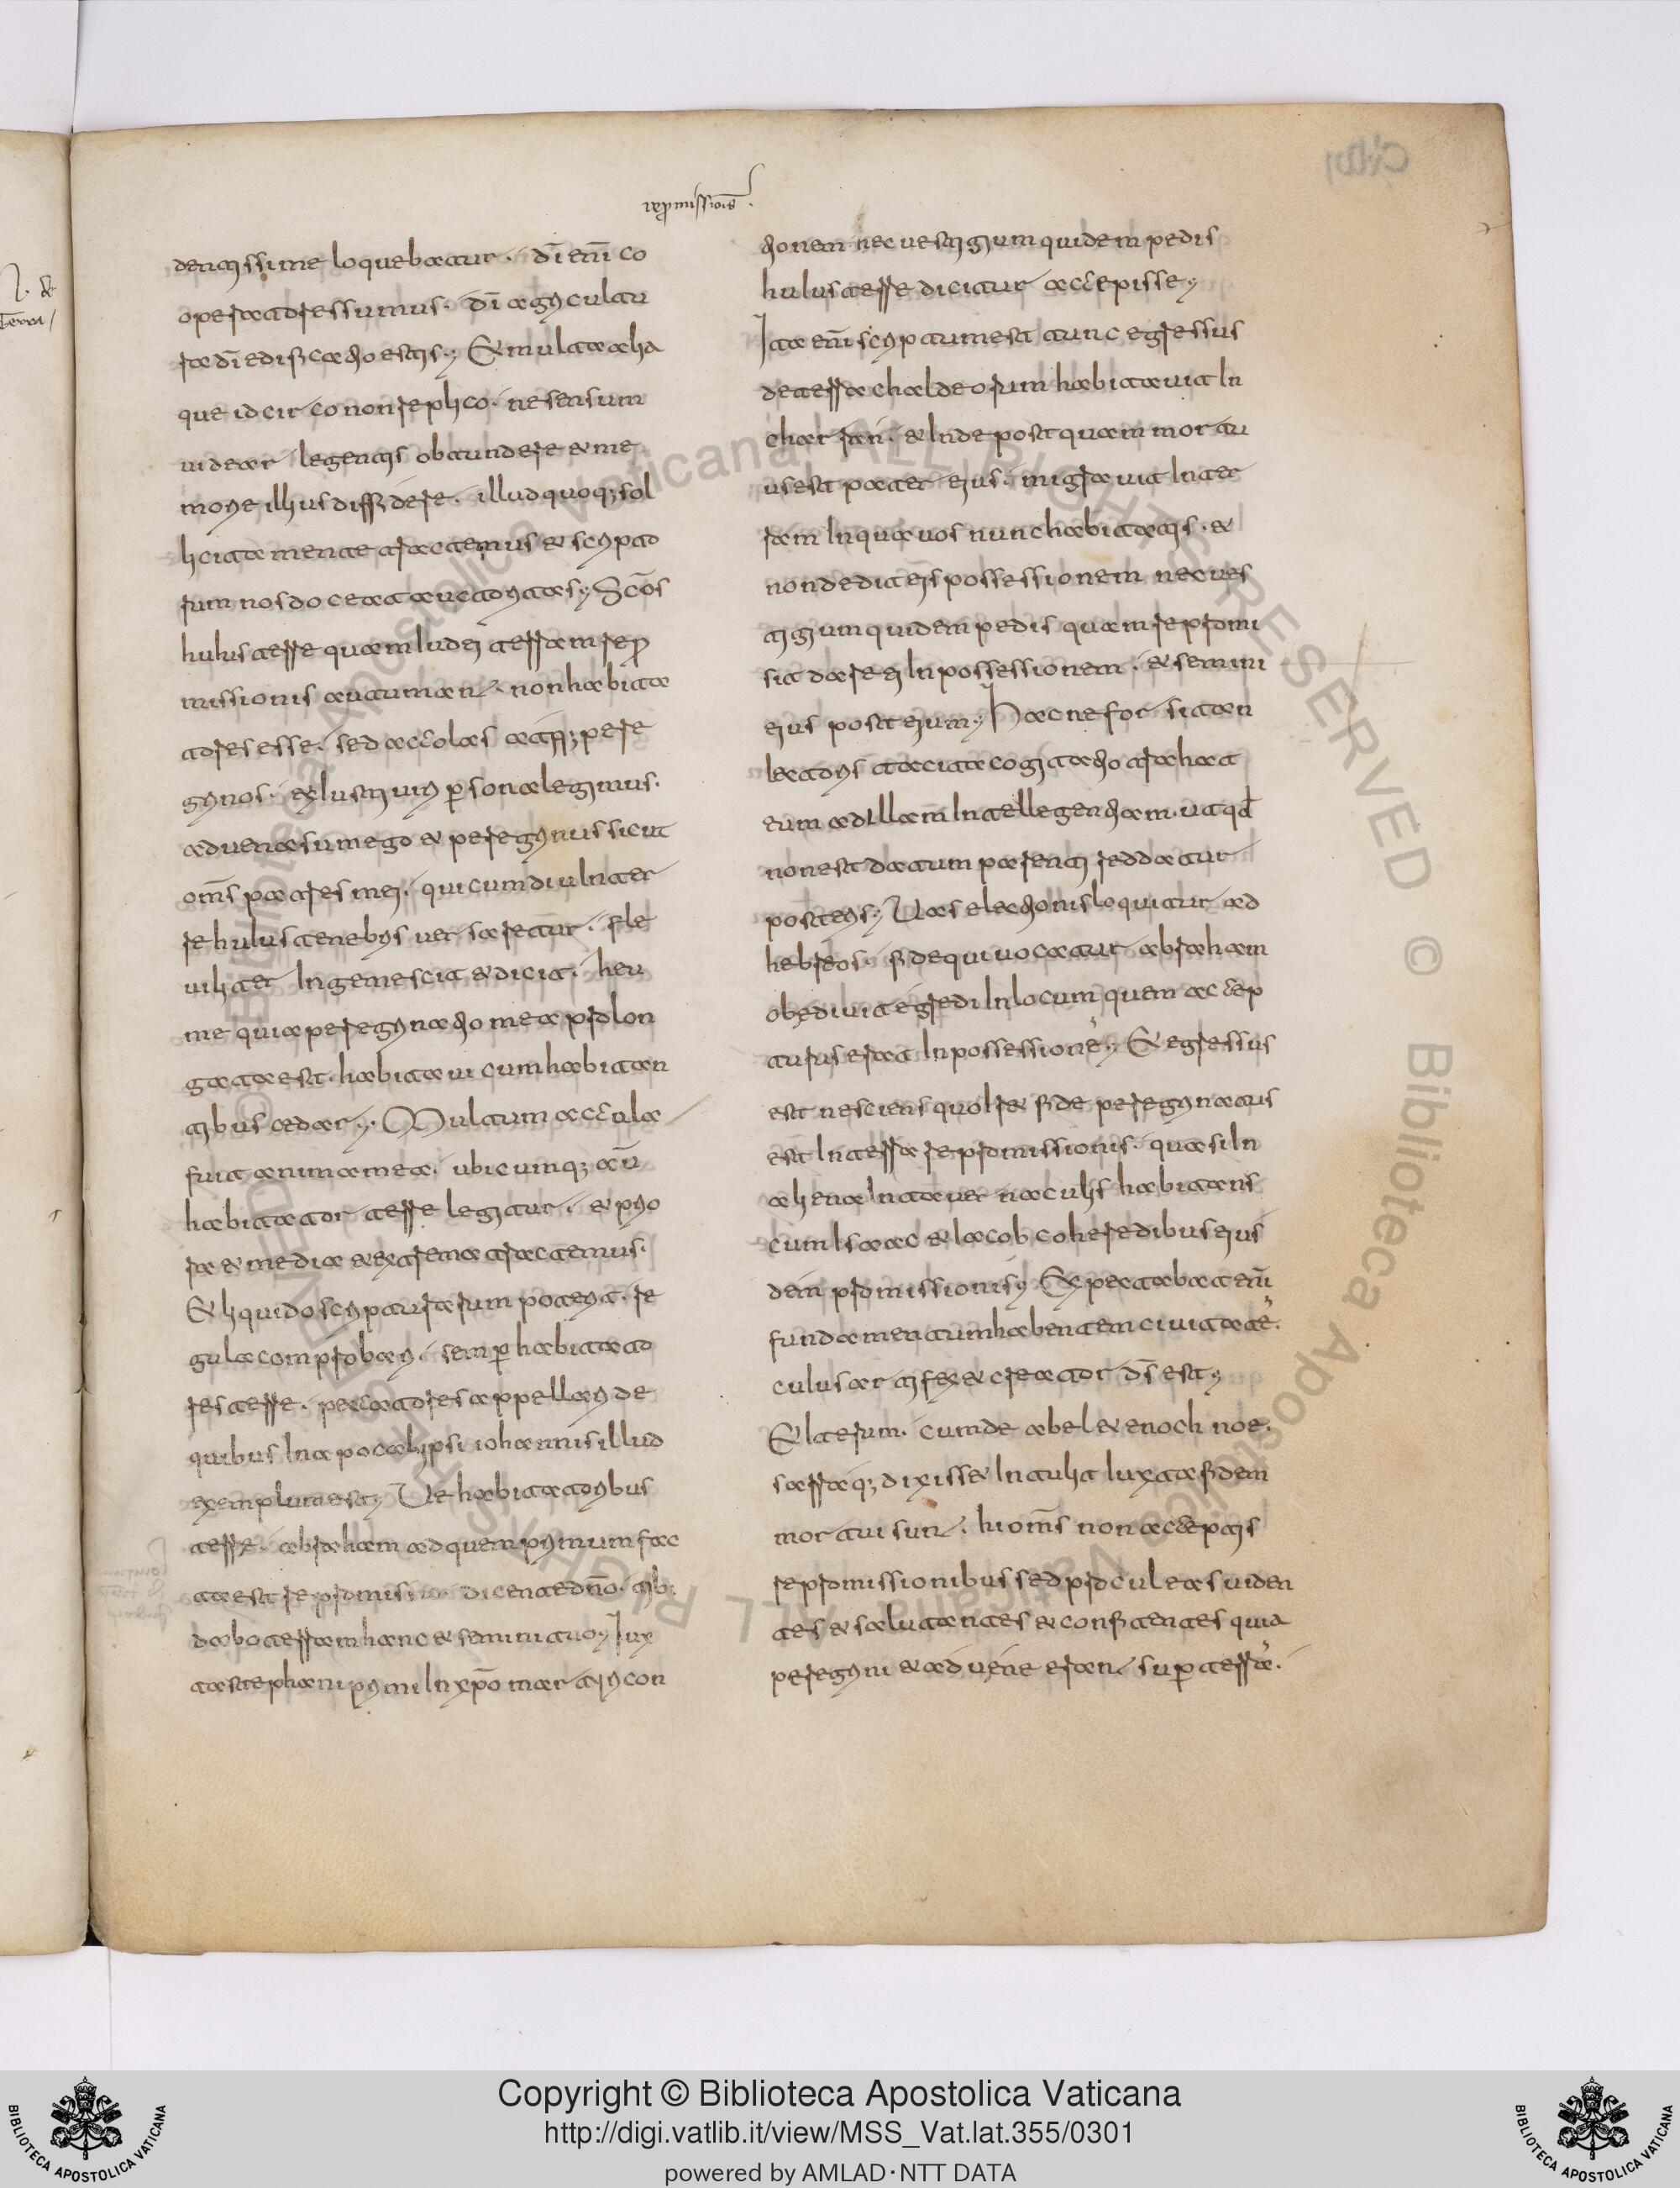 rep̄missiois̄.
dentissime loquebatur. dī enī co
operatores sumus. dī agricultu
ra dī edificatio estis; Et multa alia
que idcirco non replico. ne sensum
videar legentis obtundere et me
morie illius diffidere. illud quoq; sol
licita mente tractemus et scriptu
rarum nos doceat auctoritas; Scōs
huius terre quam iudei terram rep̄
missionis autumant. non habita
tores esse. sed accolas atq; pere
grinos. ex iusti viri p̄sona legimus.
advena sum ego et peregrinus sicut
om̄s patres mei. qui cum diu in ter
re huius tenebris versaretur. fle
viliter ingemescit et dicit. heu
me quia peregrinatio mea prolon
gata est. habitavi cum habitan
tibus cedar; Multum accula
fuit anima mea. ubicumq; aū
habitator terre legitur. et prio
ra et media et extrema tractemus.
Et liquido scripturarum poterit re
gula comprobari. semp̄ habitato
res terre. peccatores appellari de
quibus in apocalipsi iohannis illud
exemplum est; Ve habitatoribus
terre. abraham ad quem primum fac
ta est repromissio. dicente dn̄o. tibi
dabo terram hanc et semini tuo; Iux
ta stephani primi in xp̄o martiri con
tionem nec vestigium quidem pedis
huius terre dicitur accepisse;
Ita enī scriptum est tunc egressus
de terra chaldeorum habitavit in
charran. et inde postquam mortu
us est pater eius. migravit in ter
ram in qua vos nunc habitatis. et
non dedit eis possessionem nec ves
tigium quidem pedis quam repromi
sit dare ei in possessionem. et semini
eius post eum; Hac ne forsitan
lectoris tacita cogitatio trahat
eum ad illam intellegentiam. ut qd̄
non est datum parenti reddatur
posteris; Vas electionis loquitur ad
hebreos. fide qui vocatur abraham
obedivit egredi in locum quem accep
turus erat in possessionē; Et egressus
est nesciens quo iret fide peregrinatus
est in terra repromissionis. quasi in
aliena in tabernaculis habitans
cum isaac et iacob coheredibus eius
dem promissionis; Expectabat enī
fundamentum habentem civitatē.
cuius artifex et creator ds̄ est;
Et iterum. cum de abel et enoch noe.
sarraq; dixisset intulit iuxta fidem
mortui sunt. hi om̄s non acceptis
repromissionibus sed procul eas viden
tes et salutantes et confitentes quia
peregrini et advene erant. sup̄ terrā.
Copyright © Biblioteca Apostolica Vaticana
http://digi.vatlib.it/view/MSS_Vat.lat.355/0301
powered by AMLAD·NTT DATA
BIBLIOTECA APOSTOLICA VATICANA
BIBLIOTECA APOSTOLICA VATICANA